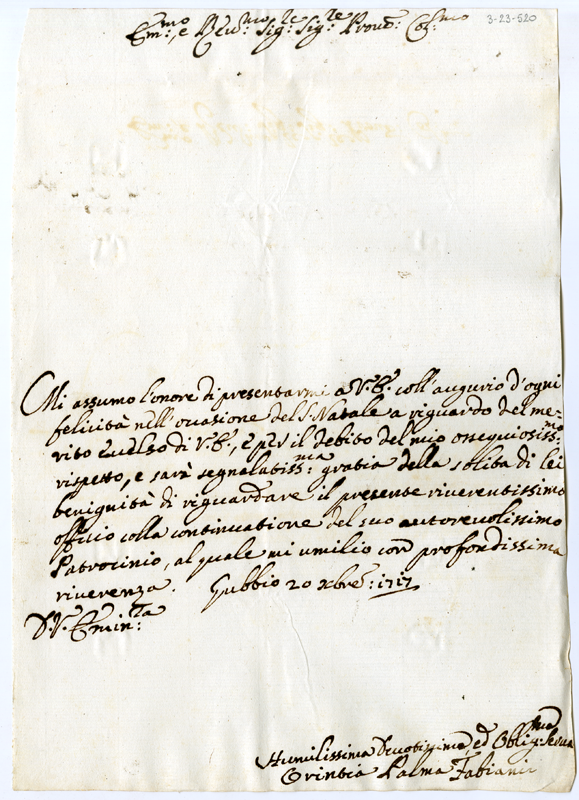 3-23-520
Em:mo, e Reu:mo Sig:re Sig:re Prone: Col:mo
Mi assumo l'onore di presentarmi a V. E. coll'augurio d'ogni
felicità nell'occasione del S. Natale a riguardo del me=
rito Excelso di V. E., e per il debito del mio ossequiosiss:mo
rispetto, e sarà segnalatiss:ma gratia della solita di lei
benignità di riguardare il presente riverentissimo
officio colla continuatione del suo autorevolissimo
Patrocinio, al quale mi umilio con profondissima
riverenza. Gubbio 20 Xbre: 1717
D. V. Emin:za
Humilissima Devotissima ed Oblig:ma Serva
Palma Fabiani